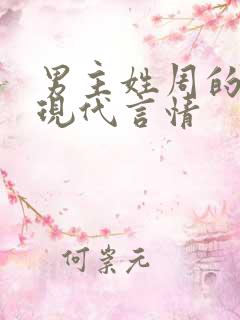 男主姓周的
现代言情
何崇元